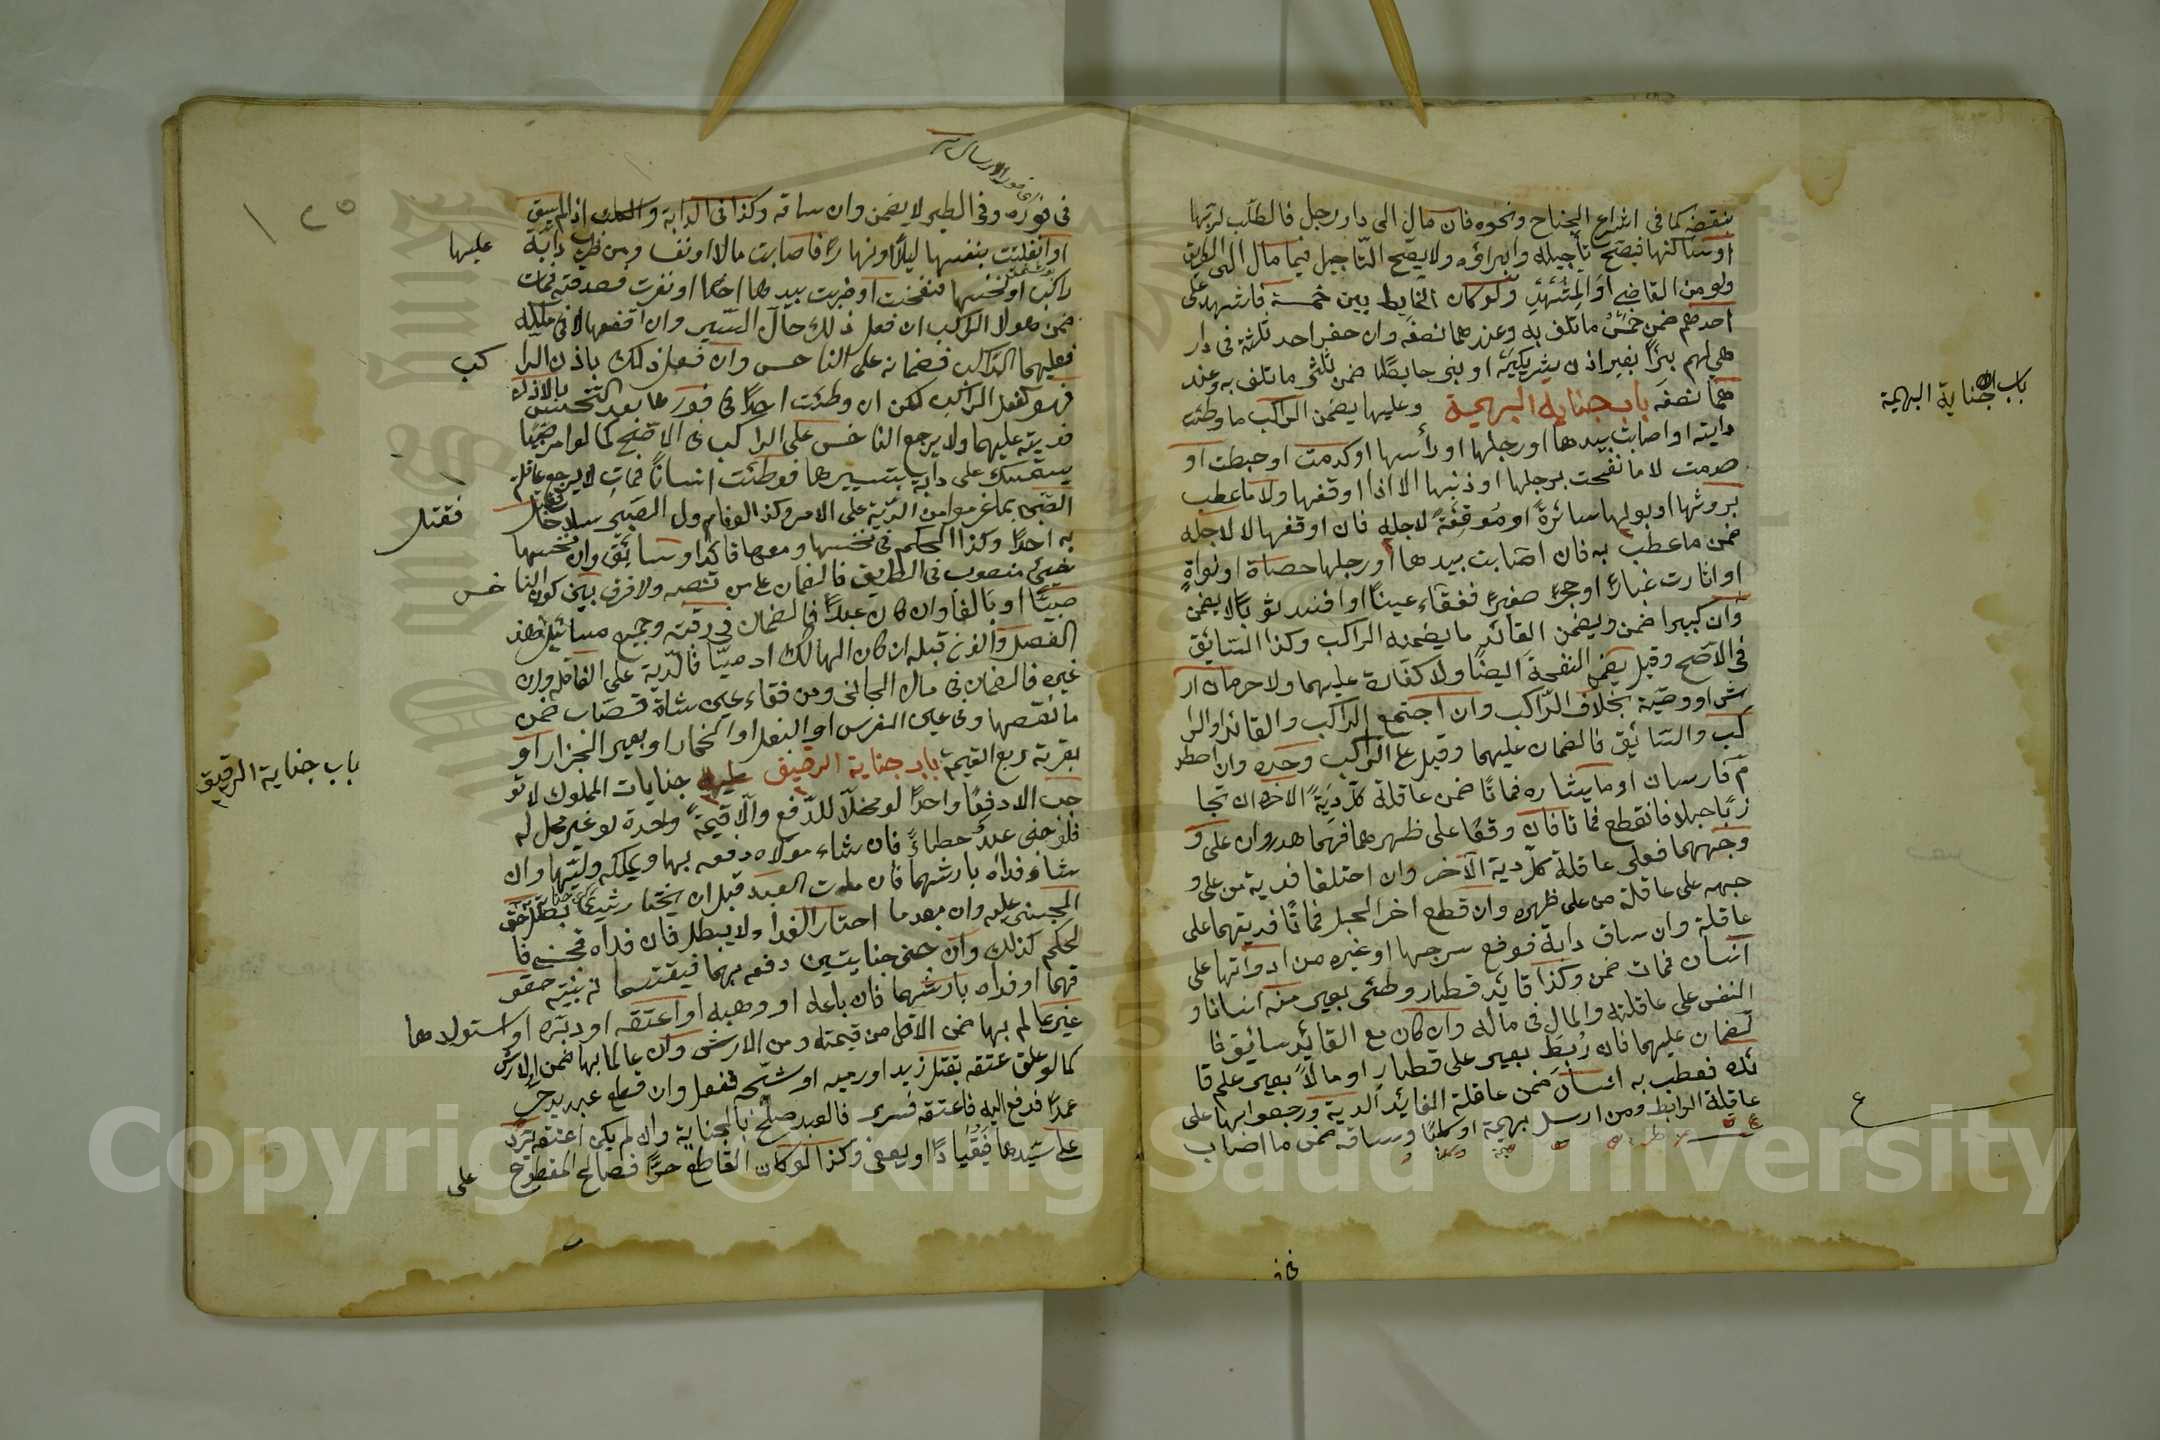 ينقضه كما في اشراع الجناح ونحوه فان مال الى دار رجل فالطلب لربها
او ساكنها فيصح تأجيله وابراؤه ولا يصح التاجيل فيما مال الى الطريق
ولو من القاضي او المشهد ولو كان الحايط بين خمسة فاشهد على
احدهم ضمن خمس ما تلف به وعندهما نصفه وان حفر احد ثلثة في دار
هي لهم بئرا بغير اذن شريكيه او بنى حايطا ضمن ثلثي ما تلف به وعند
هما نصفه باب جناية البهيمة وعليها يضمن الراكب ما وطئت
دابته او اصابت بيدها او رجلها او رأسها او كدمت او خبطت او
صدمت لا ما نفحت برجلها او ذنبها الا اذا اوقفها ولا ما عطب
بروثها او بولها سائرة او موقفة لاجله فان اوقفها لا لاجله
ضمن ما عطب به فان اصابت بيدها او رجلها حصاة او نواة
او اثارت غبارا او حجرا صغيرا ففقاء عينا او افسد ثوبا لا يضمن
وان كبيرا ضمن ويضمن القائد ما يضمنه الراكب وكذا السائق
في الاصح وقيل يضمن النفحة ايضا ولا كفارة عليهما ولا حرمان ار
ث او وصية بخلاف الراكب وان اجتمع الراكب والقائد او الرا
كب والسائق فالضمان عليهما وقيل على الراكب وحده وان اصطد
م فارسان او ماشيان فماتا ضمن عاقلة كل دية الاخر وان تجا
زبا حبلا فانقطع فماتا فان وقعا على ظهرهما فهما هدر وان على و
جههما فعلى عاقلة كل دية الآخر وان اختلفا فدية من على و
جهه على عاقلة من على ظهره وان قطع اخر الحبل فماتا فديتهما على
عاقلة وان ساق دابة فوقع سرجها او غيره من ادواتها على
انسان فمات ضمن وكذا قائد قطار وطئى بعير منه انسانا و
النفس على عاقلته والمال في ماله وان كان مع القائد سائق فا
لضمان عليهما فان ربط بعير على قطار او مالا بعير علم قا
ئده فعطب به انسان ضمن عاقلة القائد الدية ورجعوا بها على
عاقلة الرابط ومن ارسل بهيمة او كلبا وساقه ضمن ما اصاب
باب جناية البهيمة
في فوره وفي الطير لا يضمن وان ساقه وكذا في الدابة والكلب اذا لم يسق
او انفلتت بنفسها ليلا او نهارا فاصابت مالا او نفسا ومن ضرب دابة عليها
راكب او نخسها فنفحت او ضربت بيدها احدا او نفرت فصدمته فمات
ضمن هو لا الراكب ان فعل ذلك حال السير وان اوقفها لا في ملكه
فعليهما الراكب فضمانه على الناخس وان فعل ذلك باذن الرا كب
فهو كفعل الراكب لكن ان وطئت احدا في فورها بعد النخس بالاذن
فديته عليهما ولا يرجع الناخس على الراكب في الاصح كما لو امر صبيا
يستمسك على دابة بتسييرها فوطئت انسانا فمات لا يرجع عاقلة
الصبي بما غرموا من الدية على الامر وكذا لو ناول الصبي سلاحا فقتل
به احدا وكذا الحكم في نخسها ومعها قائد او سائق وان نخسها
شيئ منصوب في الطريق فالضمان على من نصبه ولا فرق بين كون الناخس
صبيا او بالغا وان كان عبدا فالضمان في رقبته وجميع مسائل هذا
الفصل والذي قبله ان كان الهالك ادميا فالدية على العاقلة وان
غيره فالضمان في مال الجاني ومن فقاء عين شاة قصاب ضمن
ما نقصها وفي عين الفرس او البغل او الحمار او بعير الجزار او
بقرته ربع القيمة باب جناية الرقيق جنايات المملوك لا تو
جب الا دفعا واحدا لو محلا للدفع والا قيمة واحدة لو غير محل له
فلو جنى عبد خطاءً فان شاء مولاه دفعه بها ويملكه وليها وان
شاء فداه بارشها فان مات العبد قبل ان يختار شيئا بطل حق
المجني عليه وان بعدما اختار الفدآء لا يبطل فان فداه فجنى فا
لحكم كذلك وان جنى جنايتين دفعه بهما فيقتسما نه بنسبة حقو
قهما او فداه بارشهما فان باعه او وهبه او اعتقه او دبره او استولدها
غير عالم بها ضمن الاقل من قيمته ومن الارش وان عالما بها ضمن الارش
كما لو علق عتقه بقتل زيد او رميه او شجه ففعل وان قطع عبد يد حر
عمدا فدفع اليه فاعتقه فسرى فالعبد صلح بالجناية وان لم يكن اعتقه يرد
على سيده فيقاد او يعفى وكذا لو كان القاطع حرا فصالح المقطوع على
باب جناية الرقيق
Copyright © King Saud University